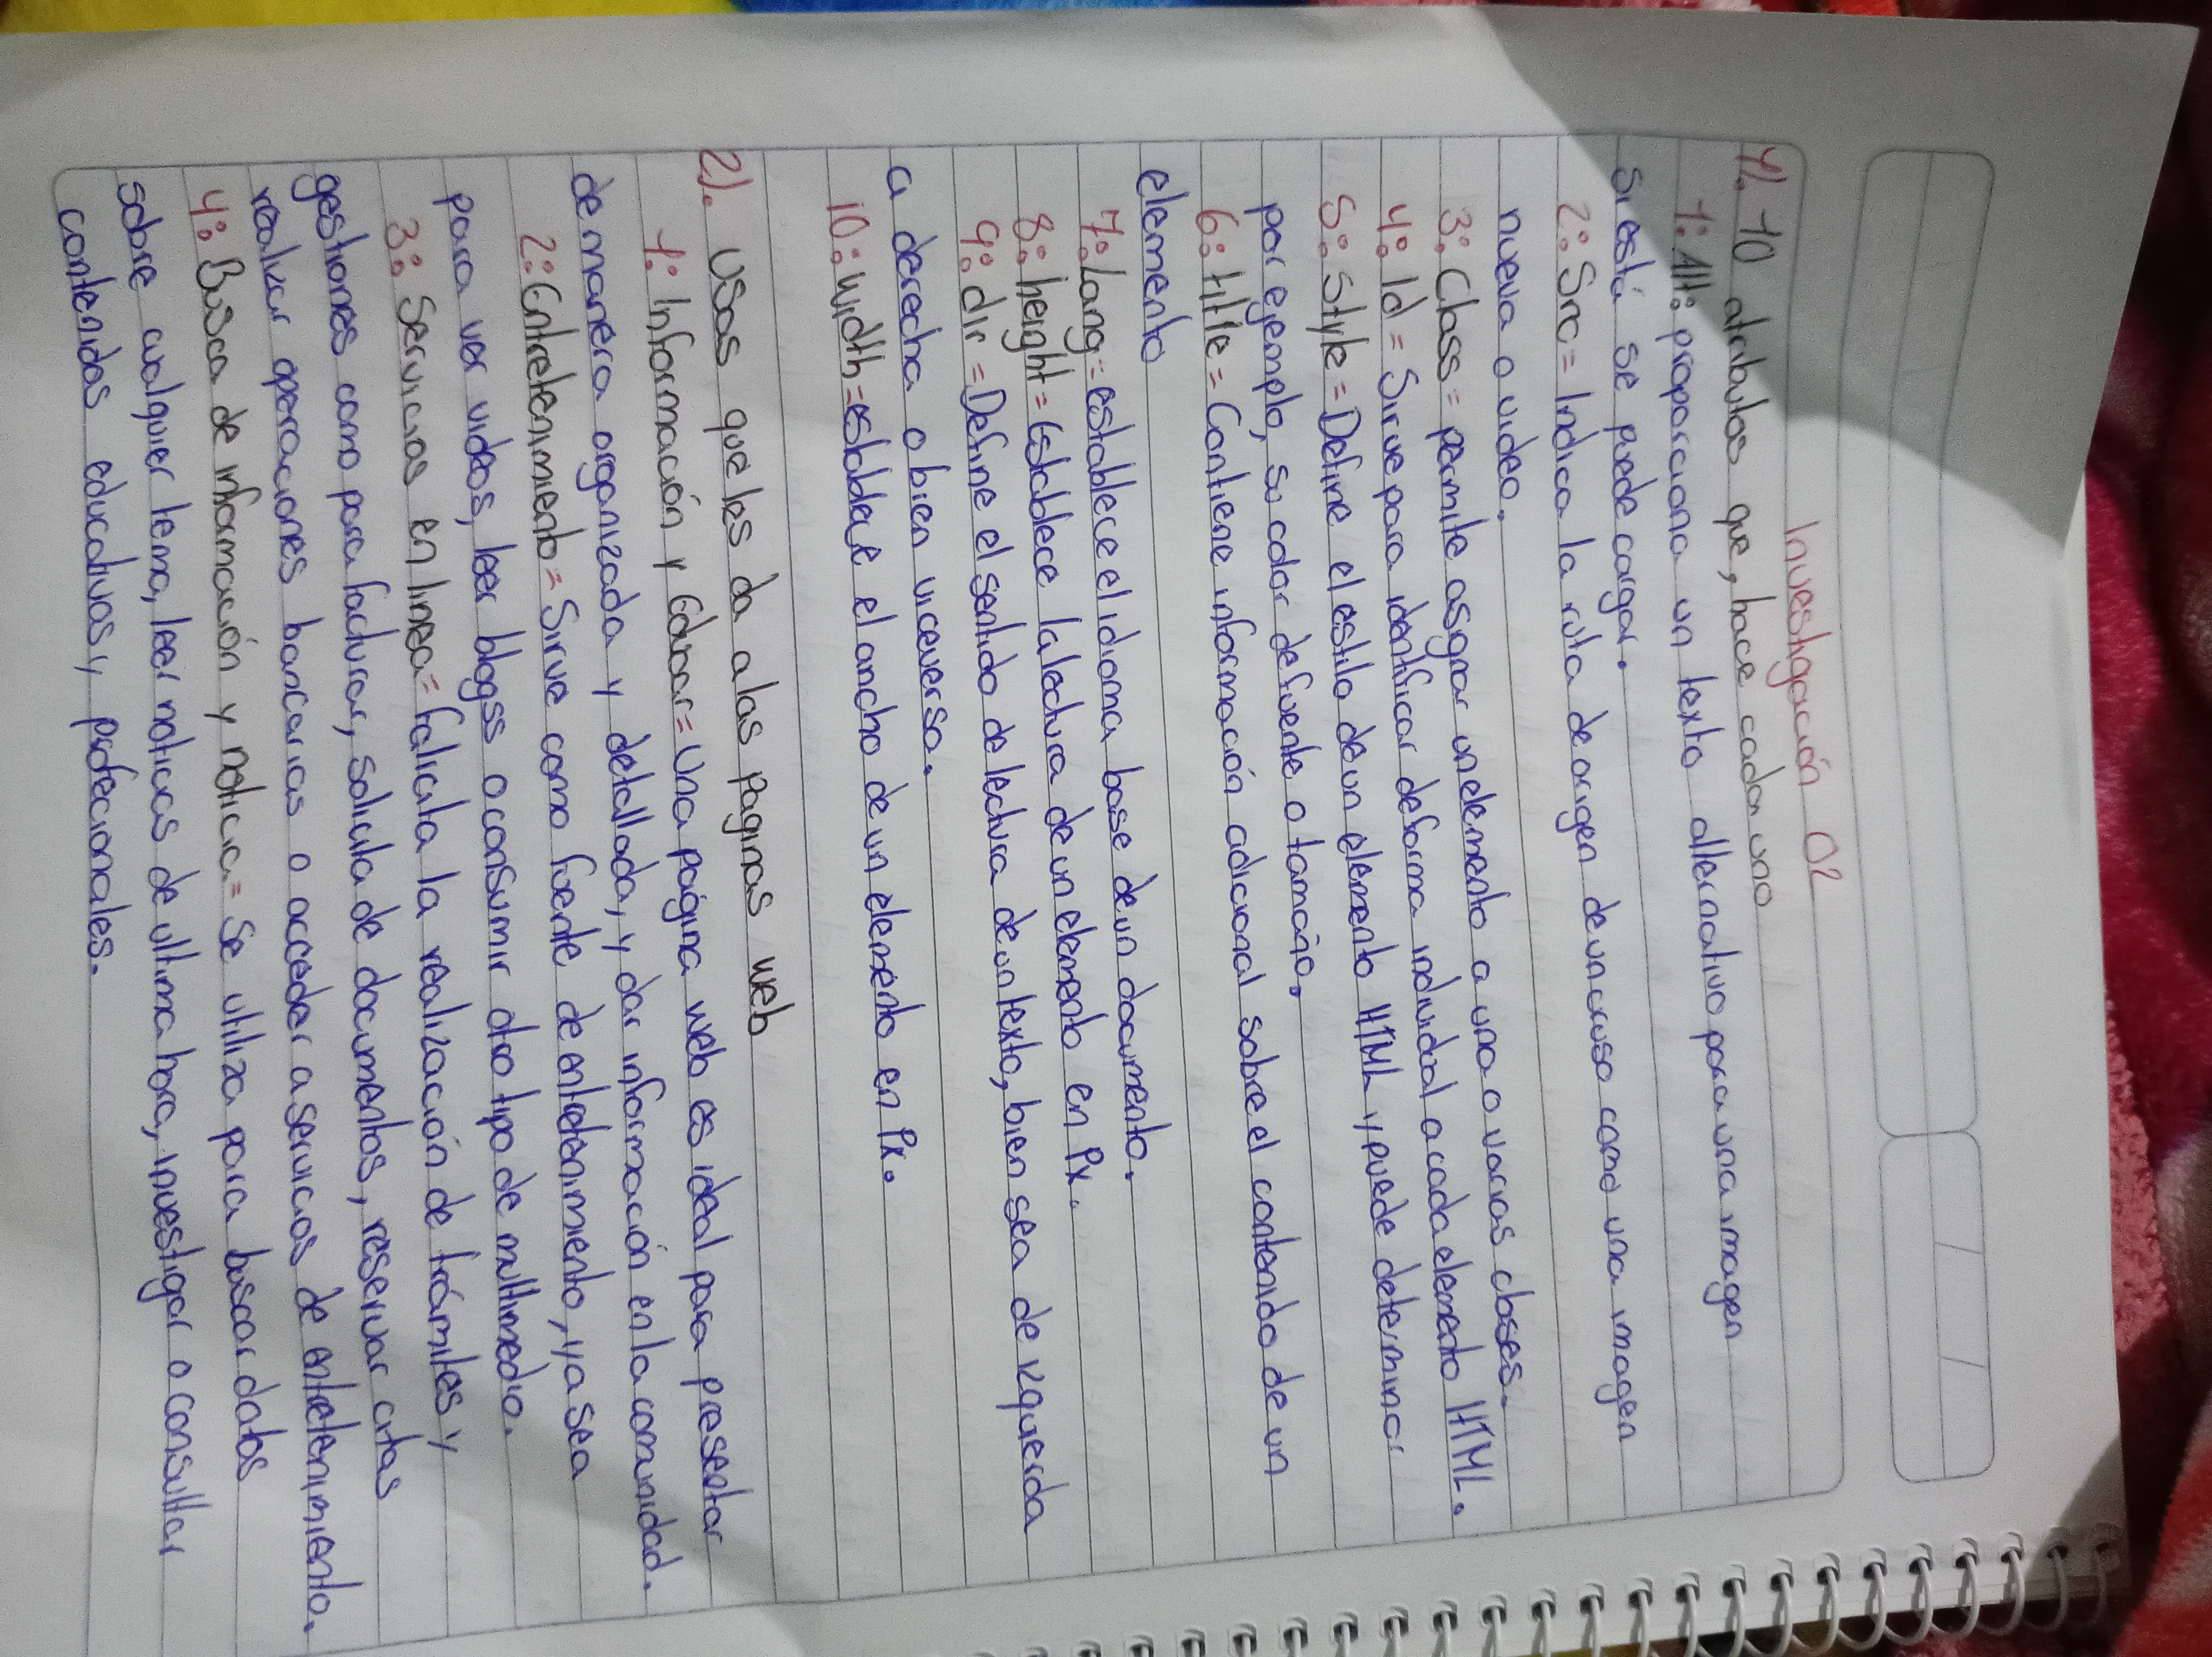 Investigación 02
1). 10 atributos que, hace cada uno
1: Alt: proporciona un texto alternativo para una imagen
si está se puede cargar.
2: Src = Indica la ruta de origen de un cruso como una imagen
nueva o video.
3: Class = permite asgnar un elemento a una o varias clases.
4: Id = Sirve para identificar de forma individual a cada elemento HTML.
5: Style = Define el estilo de un elemento HTML y puede determinar
por ejemplo, su color de fuente o tamaño.
6: title = Contiene información adicional sobre el contenido de un
elemento
7: Lang = establece el idioma base de un documento.
8: height = Establece la lectura de un elemento en Px.
9: dir = Define el sentido de lectura de un texto, bien sea de izquierda
a derecha o bien viceversa.
10: Width = establece el ancho de un elemento en Px.
2). Usos que les da a las paginas web
1: Información y Educar = Una página web es ideal para presentar
de manera organizada y detallada, y dar información en la comunidad.
2: Entretenimiento = Sirve como fuente de entretenimiento, ya sea
para ver videos, leer blogss o consumir otro tipo de multimedia.
3: Servicios en linea = falicita la realización de trámites y
gestiones como para facturar, solicita de documentos, reservar citas
realizar operaciones bancarias o acceder a servicios de entretenimiento.
4: Busca de información y noticia = Se utiliza para buscar datos
sobre cualquier tema, leer noticias de ultima hora, investigar o consultar
contenidos educativos y profecionales.